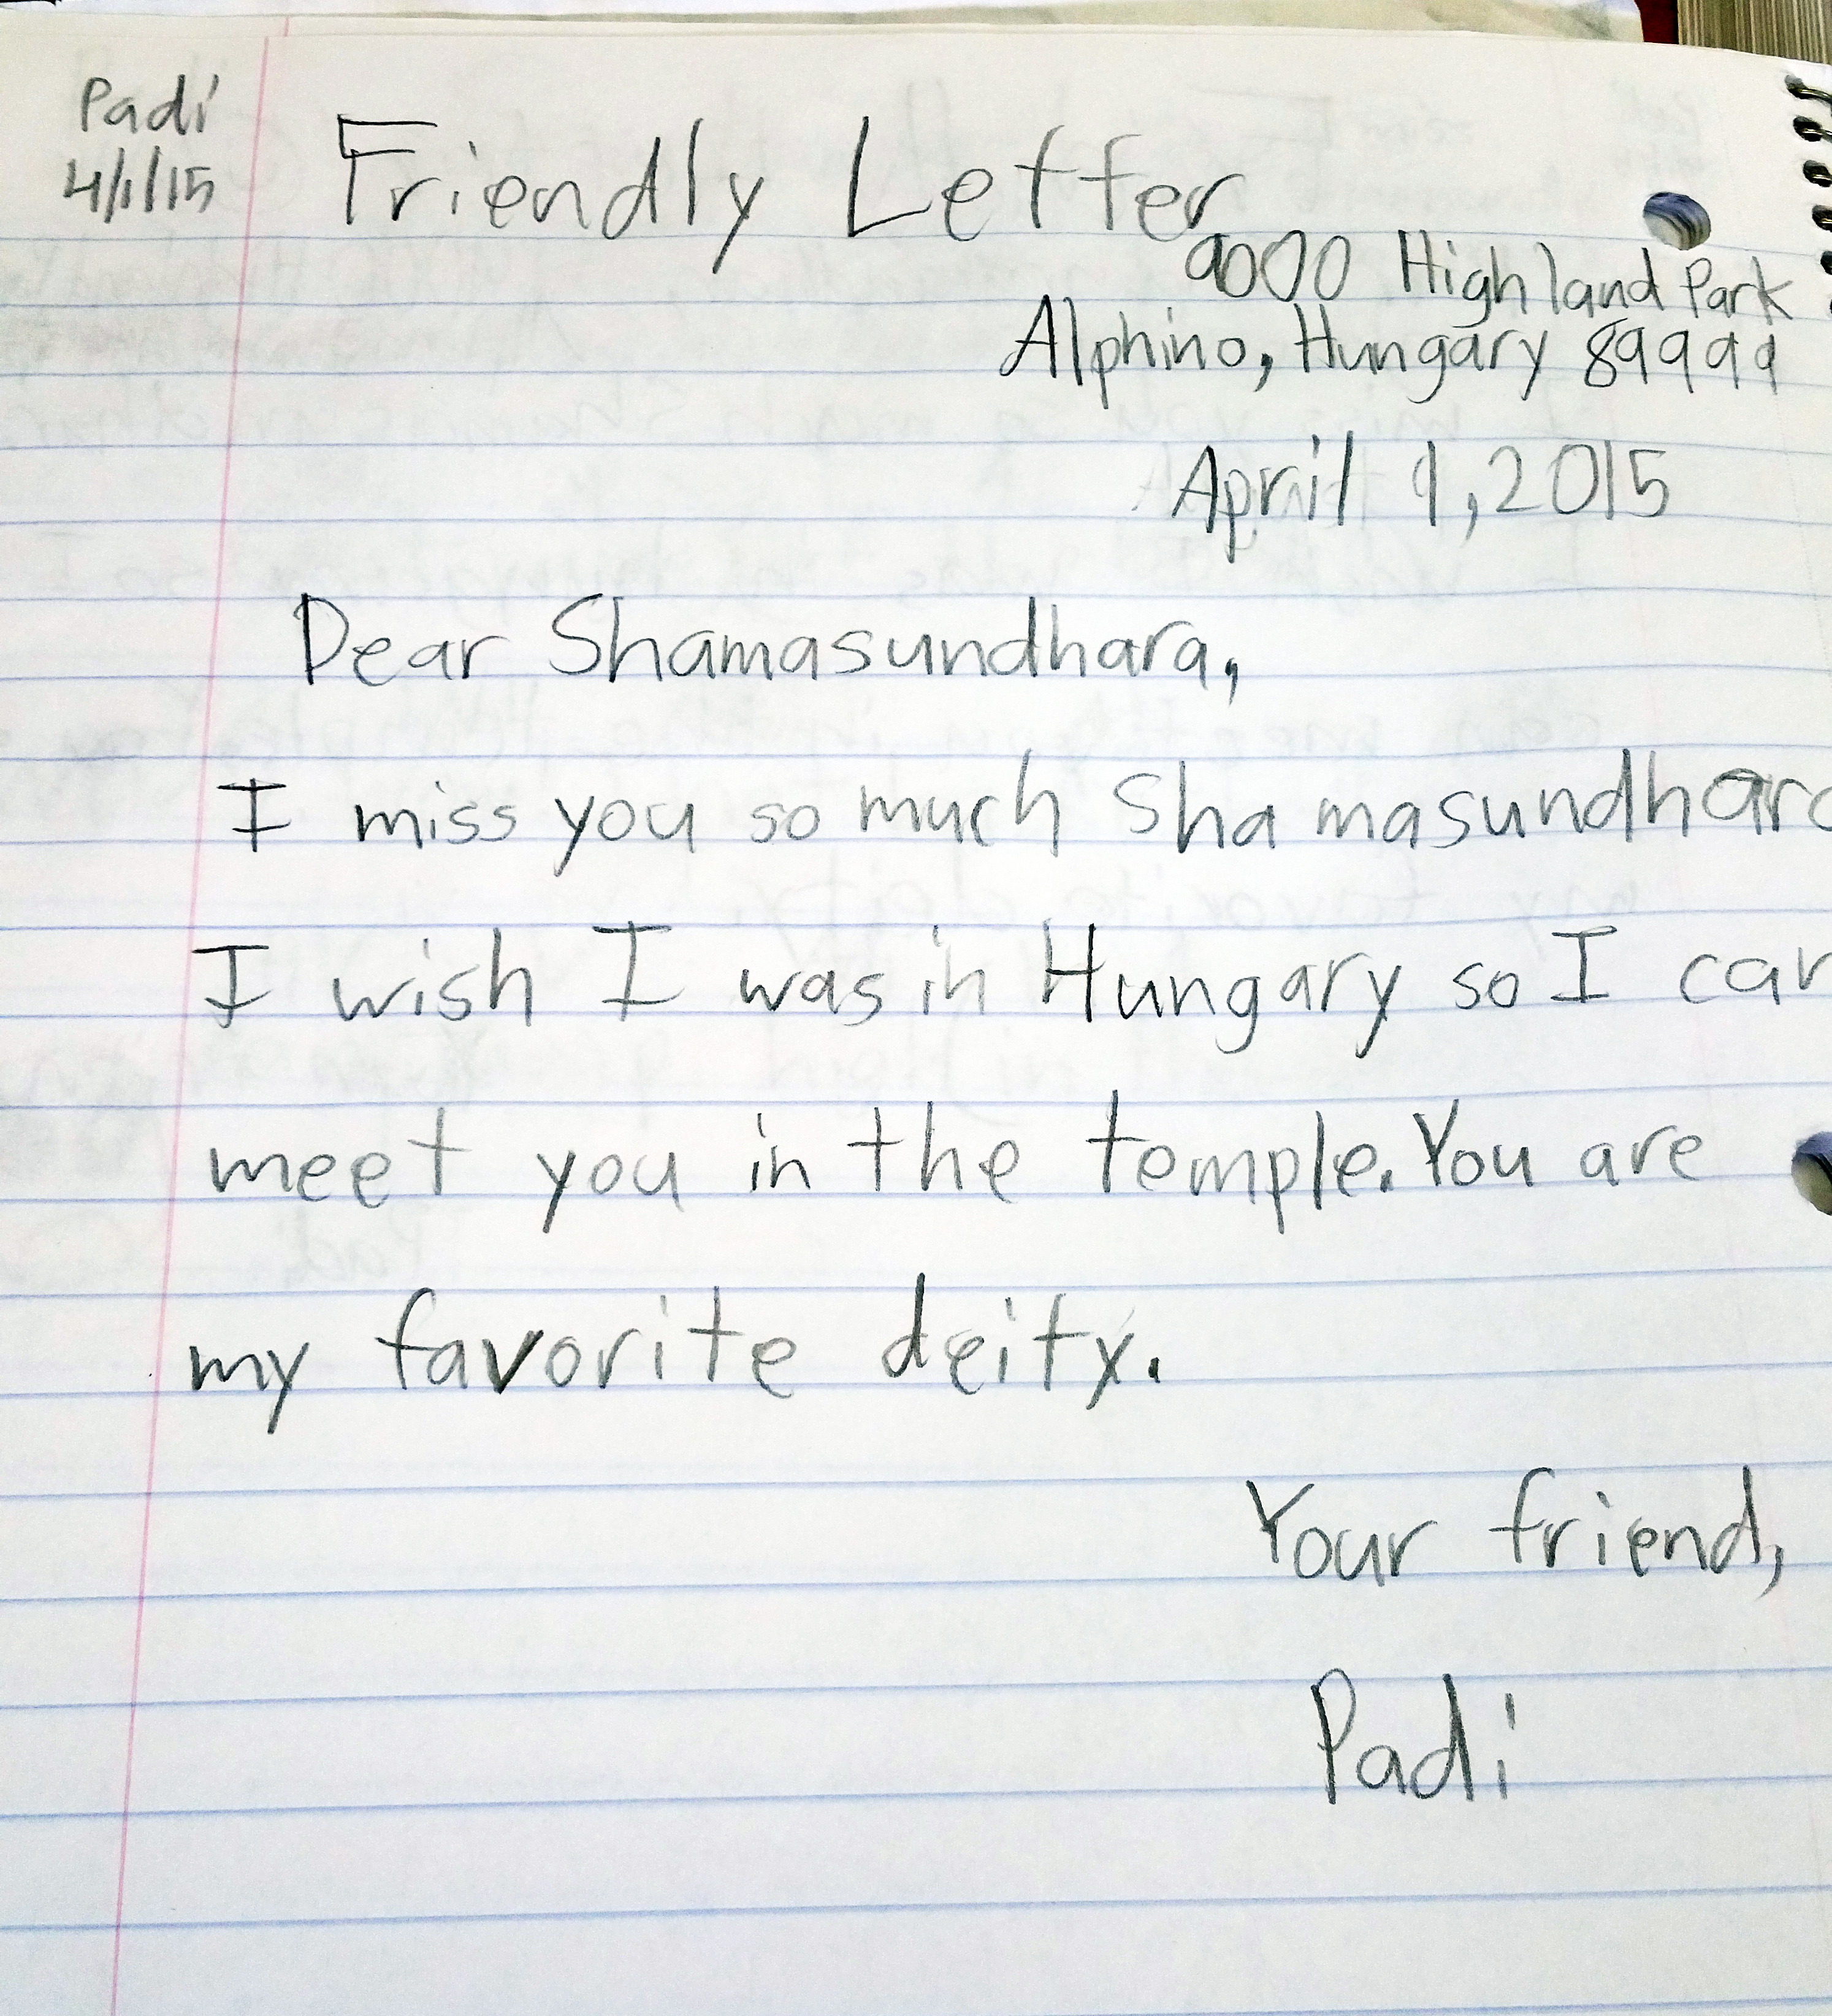 Padi
4/1/15
Friendly Letter
9000 Highland Park
Alphino, Hungary 89999
April 1, 2015
Dear Shamasundhara,
I miss you so much Shamasundhara
I wish I was in Hungary so I can
meet you in the temple. You are
my favorite deity.
Your friend,
Padi